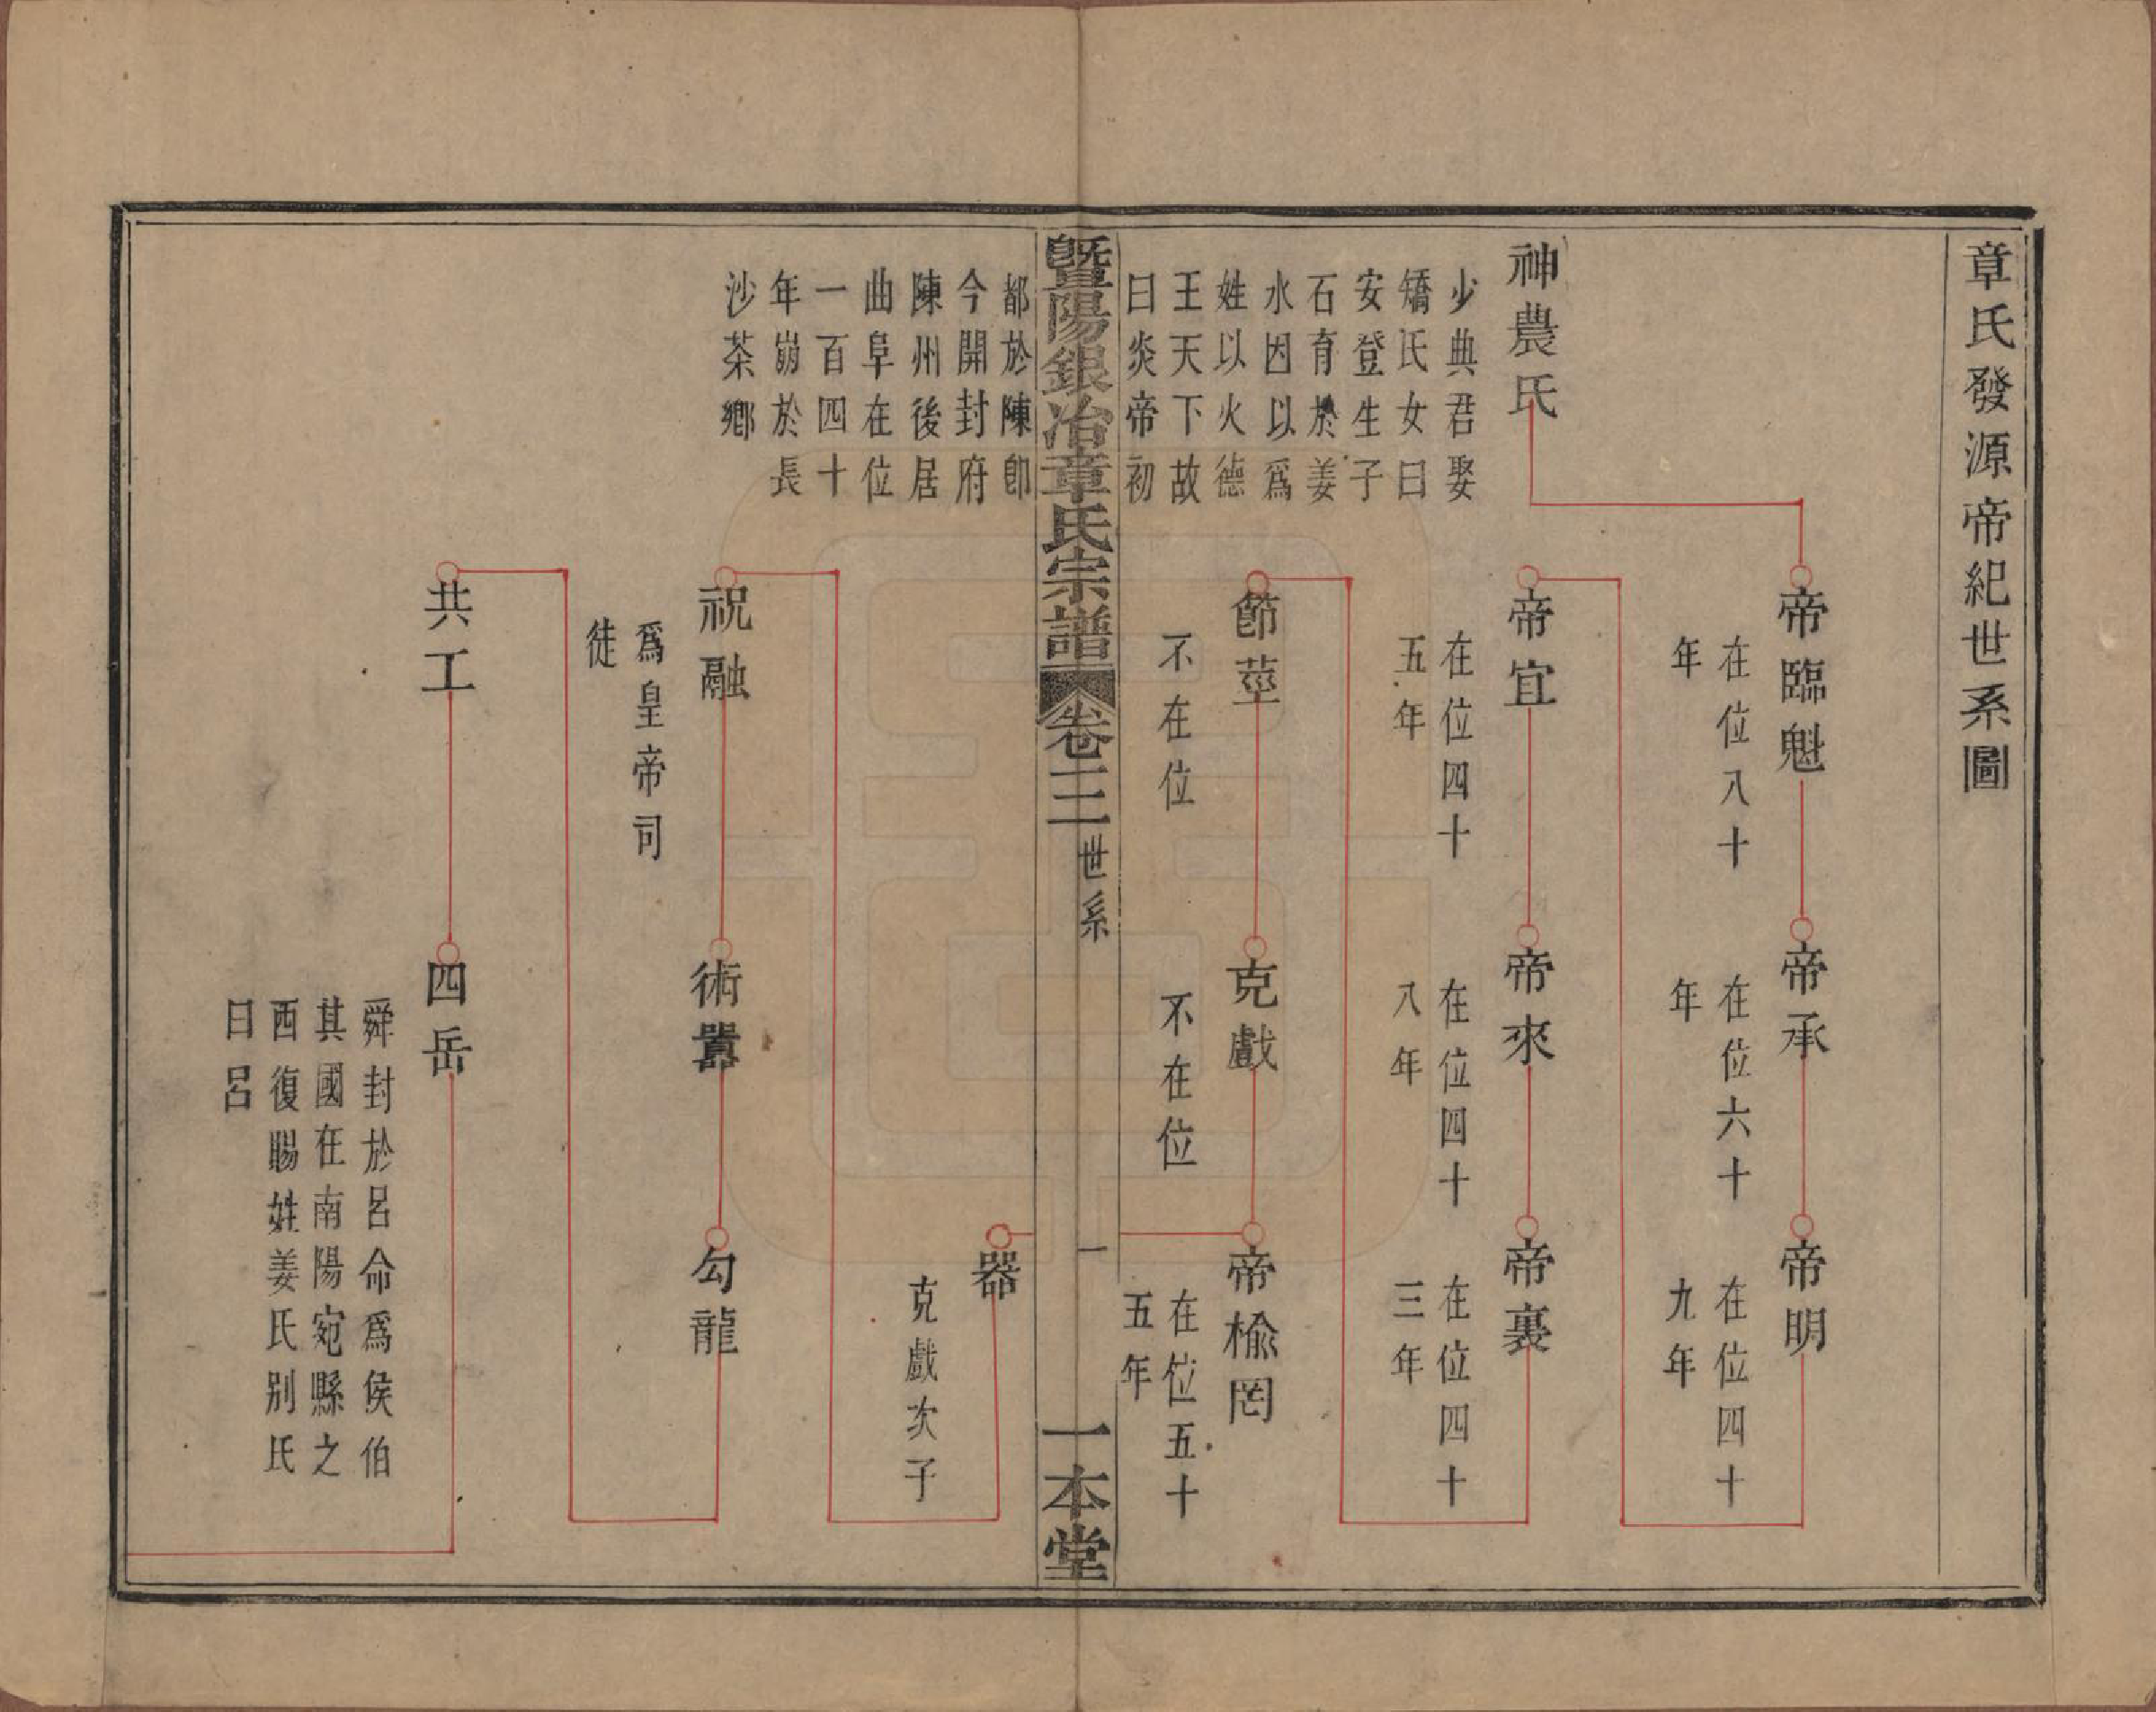 章氏發源帝紀世系圖
神農氏
少典君娶
矯氏女曰
安登生子
石育於姜
水因以爲
姓以火德
王天下故
曰炎帝初
都於陳卽
今開封府
陳州後居
曲阜在位
一百四十
年崩於長
沙茶鄉
帝臨魁
在位八十
年
帝承
在位六十
年
帝明
在位四十
九年
帝宜
在位四十
五年
帝來
在位四十
八年
帝裏
在位四十
三年
節莖
不在位
克戲
不在位
帝榆罔
在位五十
五年
暨陽銀冶章氏宗譜
卷二
世系
一
一本堂
器
克戲次子
祝融
爲皇帝司
徒
術囂
勾龍
共工
四岳
舜封於呂命爲侯伯
其國在南陽宛縣之
西復賜姓姜氏別氏
曰呂